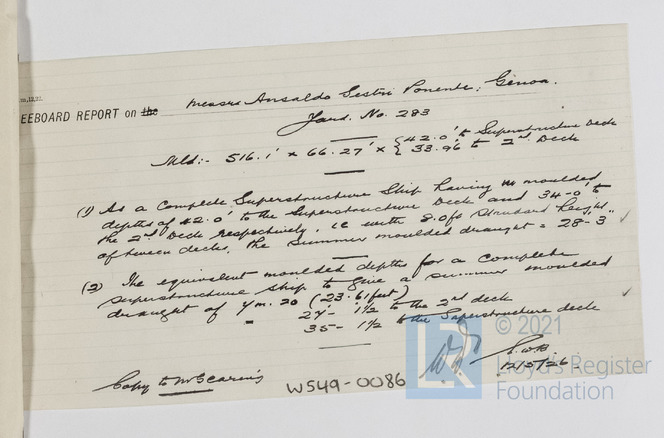 m.12,22.
EEBOARD REPORT on the Messrs Ansaldo Sestri Ponente, Genoa.
Yard. No. 283
Mld:- 516.1' x 66.27' x { 42.0' to Superstructure Deck
33.96 to 2nd Deck
(1) As a Complete Superstructure Ship having moulded
depths of 42.0' to the Superstructure Deck and 34-0' to
the 2nd Deck respectively, ie with 8.0ft Standard height
of tween decks, the summer moulded draught = 28'-3"
(2) The equivalent moulded depths for a complete
superstructure ship to give a summer moulded
draught of 7m.20 (23.61 feet)
= 27'- 1½ to the 2nd deck
35 - 1½ to the Superstructure deck
12/5/26.
Copy to Mr Scarini
W549-0086
© 2021
Lloyd's Register
Foundation
LR